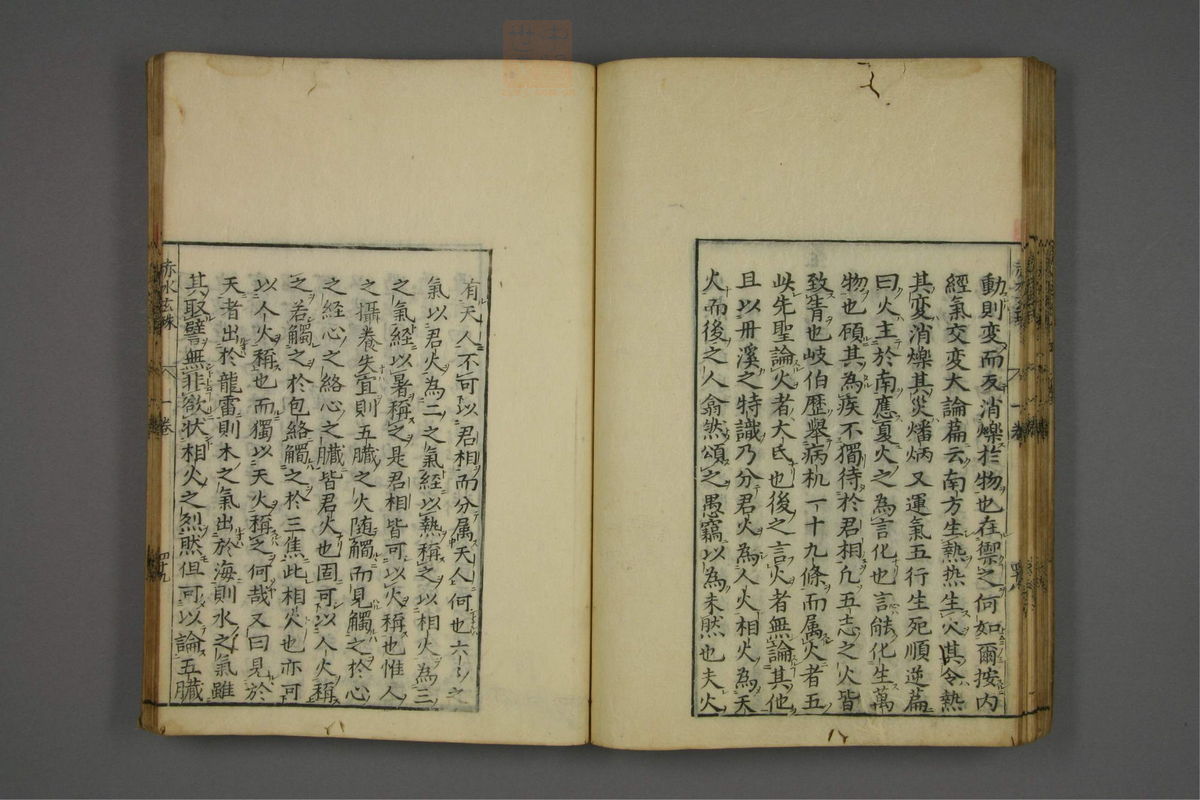 動則変而反消爍於物也在禦之何如爾按内
經氣交変大論篇云南方生熱熱生火其令熱
其変消爍其災燔焫又運氣五行生死順逆篇
曰火主於南應夏火之為言化也言能化生萬
物也顧其為疾不獨待於君相凢五志之火皆
致眚也岐伯歴舉病机一十九條而属火者五
此先聖論火者大氐也後之言火者無論其他
且以丹溪之特識乃分君火為人火相火為天
火而後之人翕然頌之愚竊以為未然也夫火
有天人不可以君相而分属天人何也六之
氣以君火為二之氣經以熱稱之以相火為三
之氣經以暑稱之是君相皆可以火稱也惟人
之攝養失宜則五臓之火随觸而見觸之於心
之經心之絡心之臓皆君火也固可以人火稱
之若觸之於包絡觸之於三焦此相火也亦可
以人火稱也而獨以天火稱之何哉又曰見於
天者出於龍雷則木之氣出於海則水之氣雖
其取譬無非欲状相火之烈然但可以論五臓
赤水玄珠
一卷
四十九